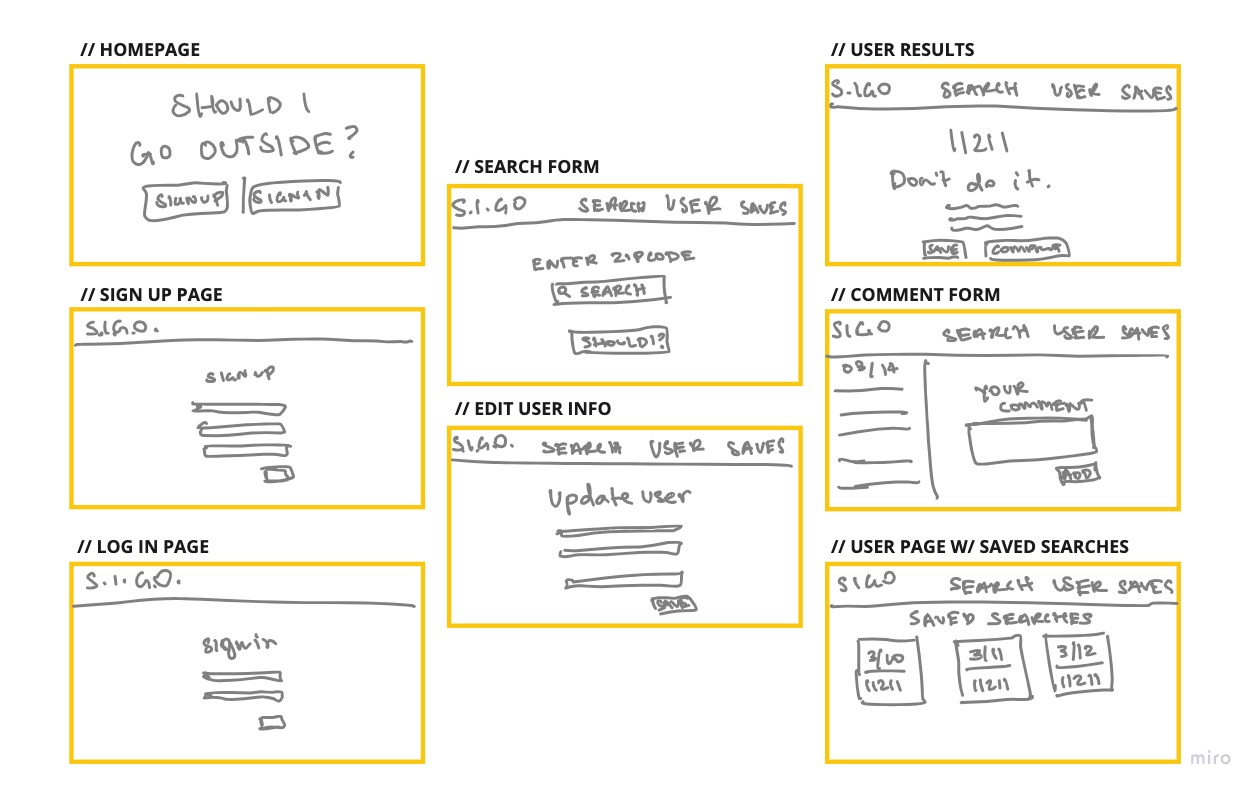 // HOMEPAGE
SHOULD I
GO OUTSIDE?
SIGNUP | SIGNIN
// SIGN UP PAGE
S.I.G.O.
SIGN UP
// LOG IN PAGE
S.I.G.O.
signin
// SEARCH FORM
S.I.GO SEARCH USER SAVES
ENTER ZIPCODE
SEARCH
SHOULD I?
// EDIT USER INFO
S.I.G.O. SEARCH USER SAVES
Update user
SAVE
// USER RESULTS
S.IGO SEARCH USER SAVES
11211
Don't do it.
SAVE COMMENT
// COMMENT FORM
SIGO SEARCH USER SAVES
03/14
YOUR
COMMENT
ADD
// USER PAGE W/ SAVED SEARCHES
SIGO SEARCH USER SAVES
SAVED SEARCHES
3/10 3/11 3/12
11211 11211 11211
miro